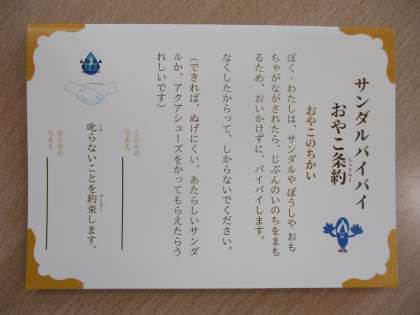 サンダルバイバイ
おやこ条約
おやこのちかい
ぼく・わたしは、サンダルやぼうしやおも
ちゃがながされたら、じぶんのいのちをまも
るため、おいかけずに、バイバイします。
なくしたからって、しからないでください。
(できれば、ぬげにくい、あたらしいサンダ
ルか、アクアシューズをかってもらえたらう
れしいです)
こどもの
なまえ
叱らないことを約束します。
おとなの
なまえ